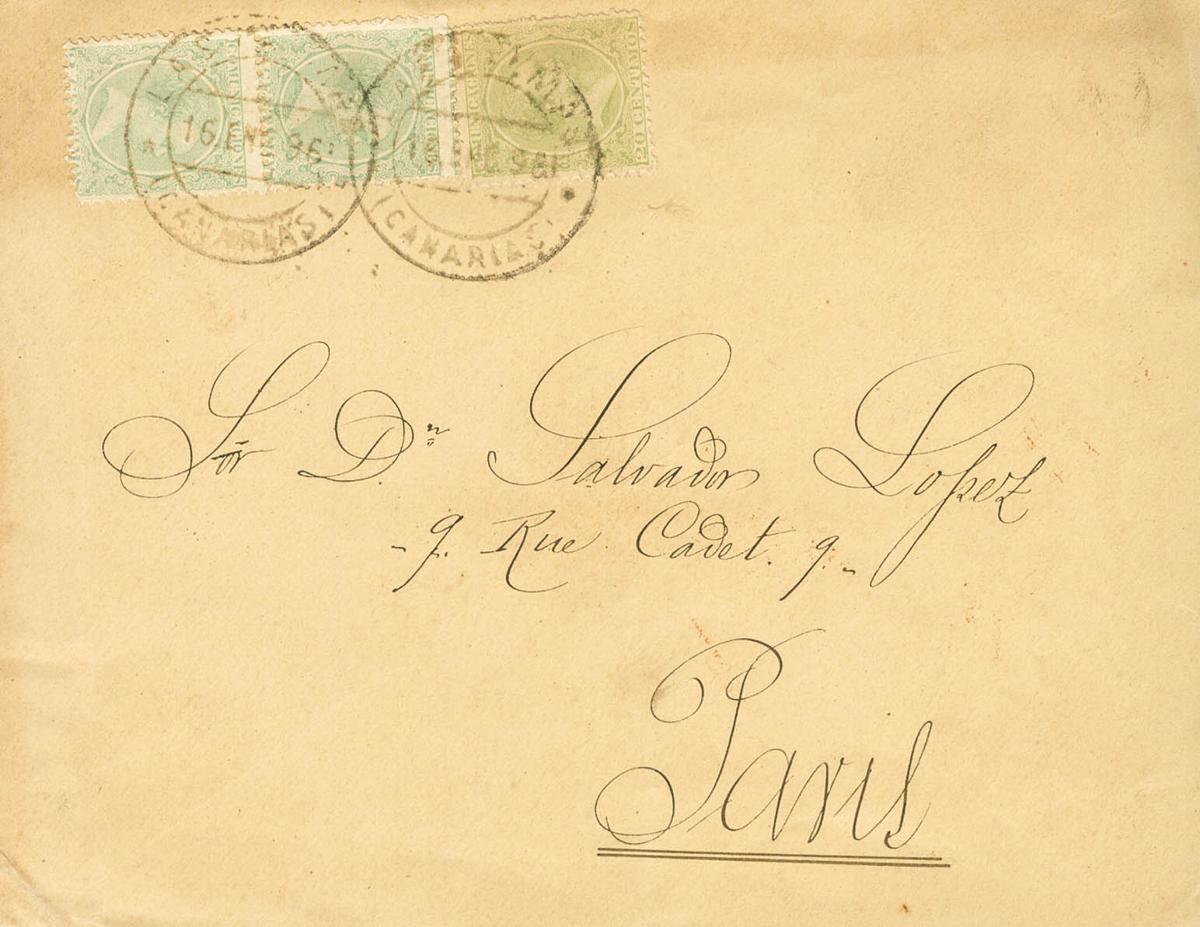 16 EN 96
(CANARIAS)
(CANARIAS)
20 CENTIMOS
Sōr Dⁿ Salvador Lopez
- 9. Rue Cadet. 9. -
Paris